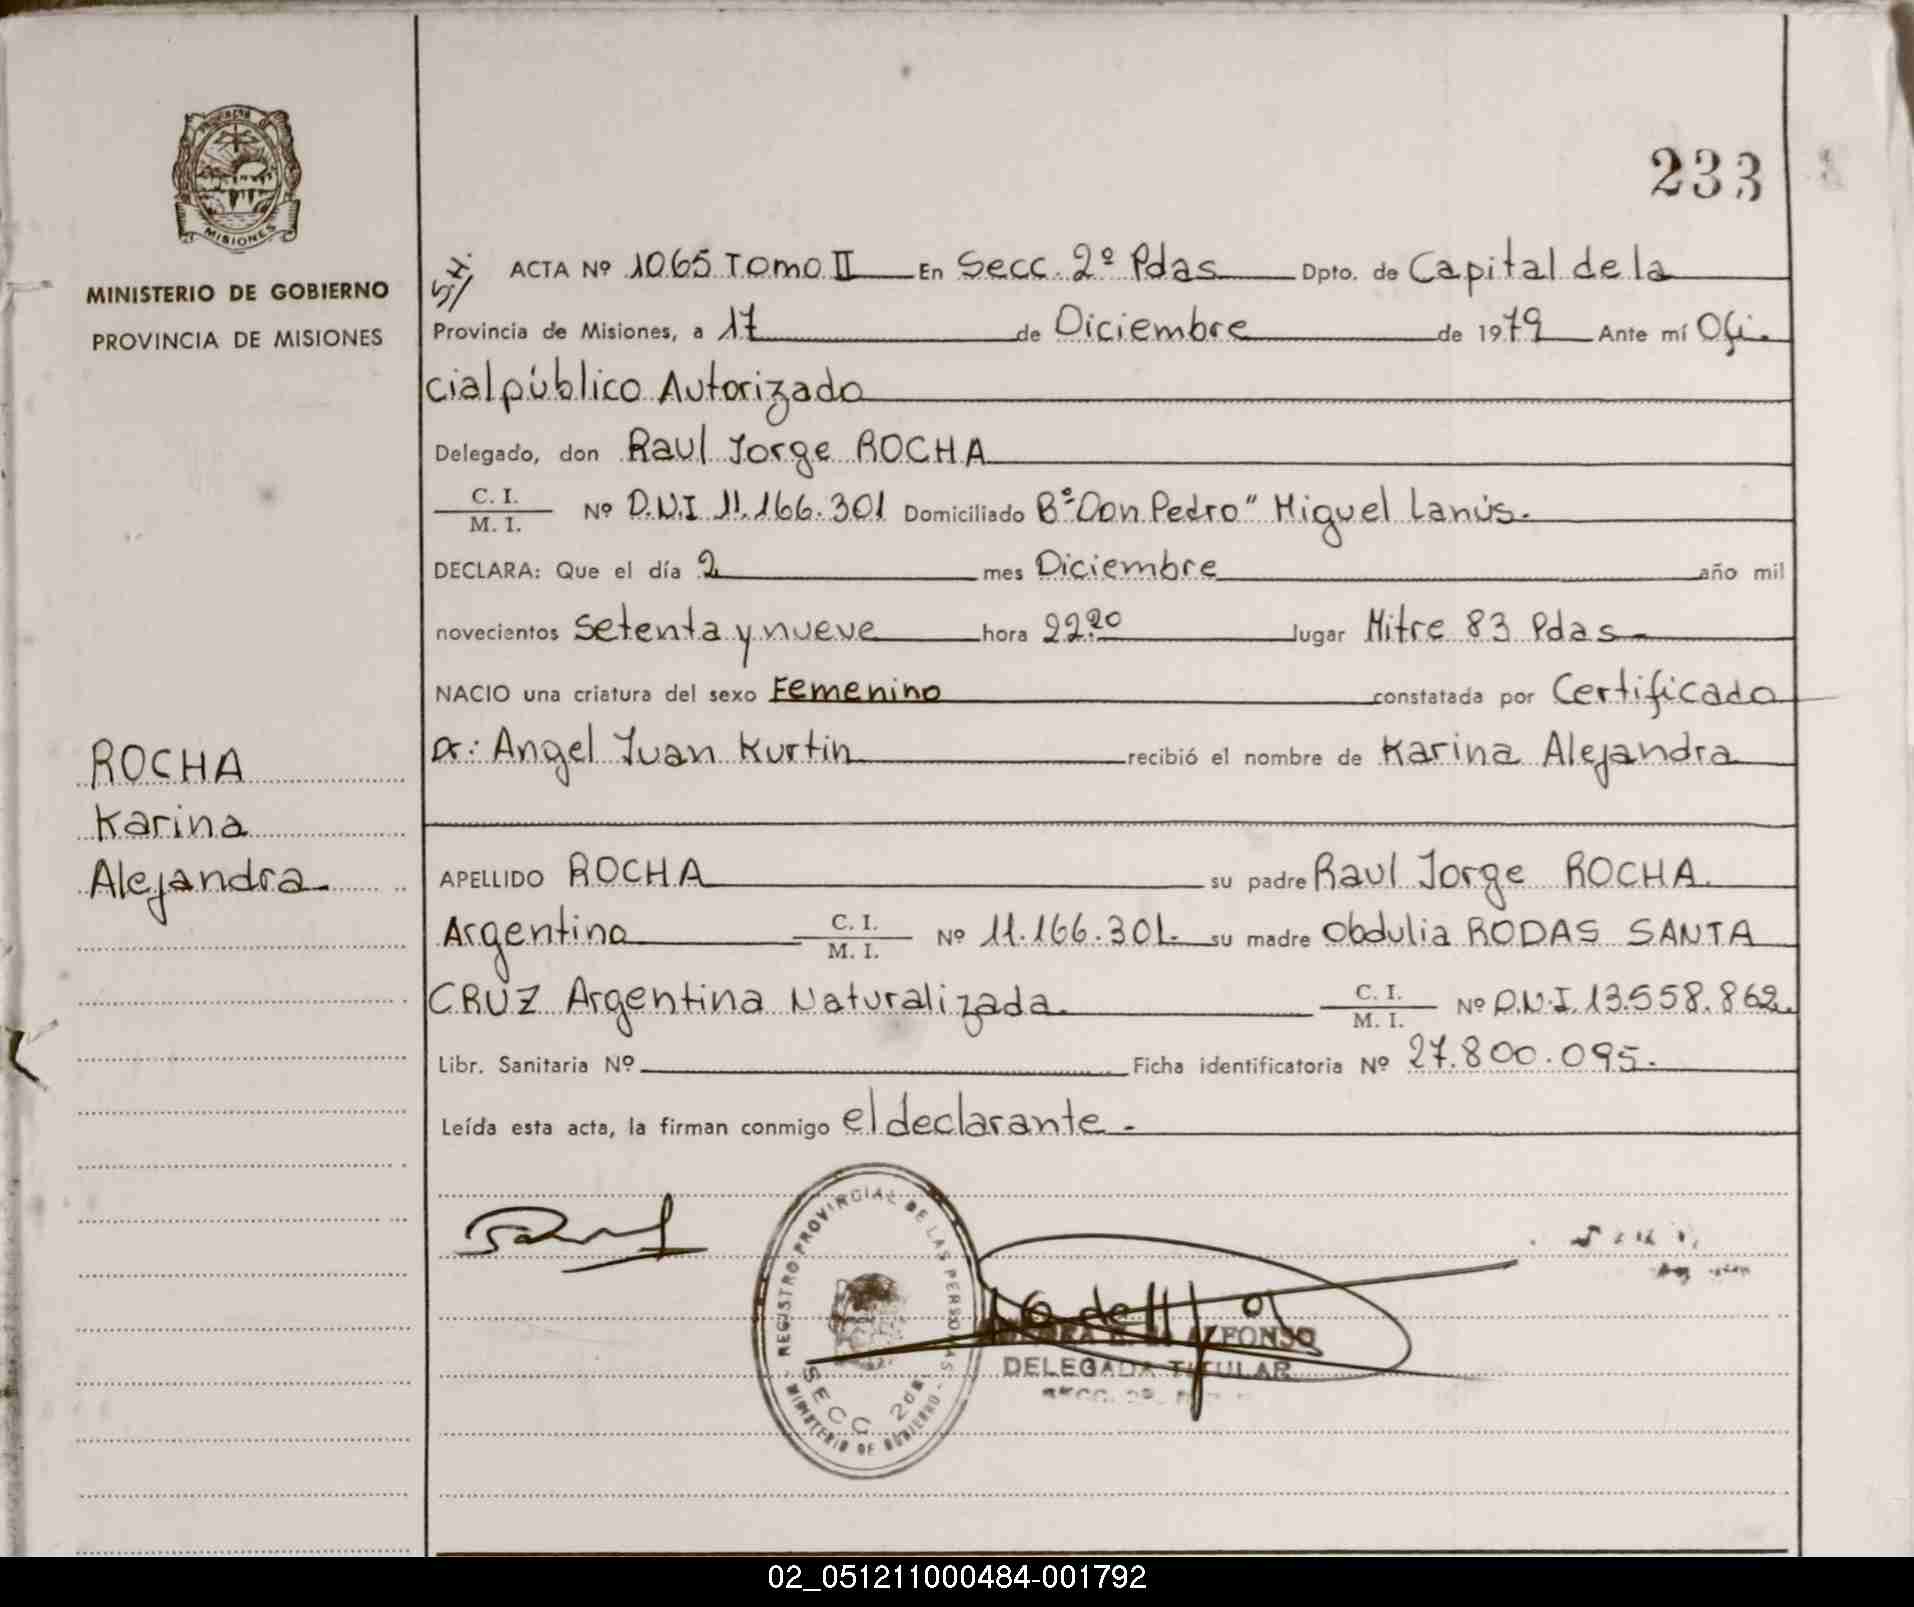 233
MISIONES
MINISTERIO DE GOBIERNO
PROVINCIA DE MISIONES
ROCHA
Karina
Alejandra
ACTA Nº 1065 Tomo II En Secc. 2º Pdas Dpto. de Capital de la
Provincia de Misiones, a 17 de Diciembre de 1979 Ante mí Ofi-
cial público Autorizado
Delegado, don Raul Jorge ROCHA
C. I.
M. I. Nº D.N.I 11.166.301 Domiciliado Bº "Don Pedro" Miguel Lanús.
DECLARA: Que el día 2 mes Diciembre año mil
novecientos setenta y nueve hora 22.20 lugar Mitre 83 Pdas.
NACIO una criatura del sexo Femenino constatada por Certificado
Dr: Angel Juan Kurtin recibió el nombre de Karina Alejandra
APELLIDO ROCHA su padre Raul Jorge ROCHA.
Argentino C. I.
M. I. Nº 11.166.301. su madre Obdulia RODAS SANTA
CRUZ Argentina Naturalizada. C. I.
M. I. Nº D.N.I. 13.558.862.
Libr. Sanitaria Nº Ficha identificatoria Nº 27.800.095.
Leída esta acta, la firman conmigo el declarante.-
REGISTRO PROVINCIAL DE LAS PERSONAS
SECC 2da
MINISTERIO DE GOBIERNO
ALFONSO
DELEGADA TITULAR
02_051211000484-001792